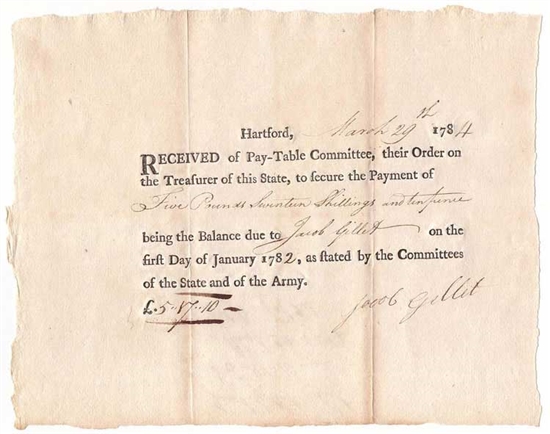 Hartford, March 29th 1784
RECEIVED of Pay-Table Committee, their Order on
the Treaſurer of this State, to ſecure the Payment of
Five Pounds Seventeen Shillings and ten pence
being the Balance due to Jacob Gillet on the
firſt Day of January 1782, as ſtated by the Committees
of the State and of the Army.
£.5..17..10
Jacob Gillet